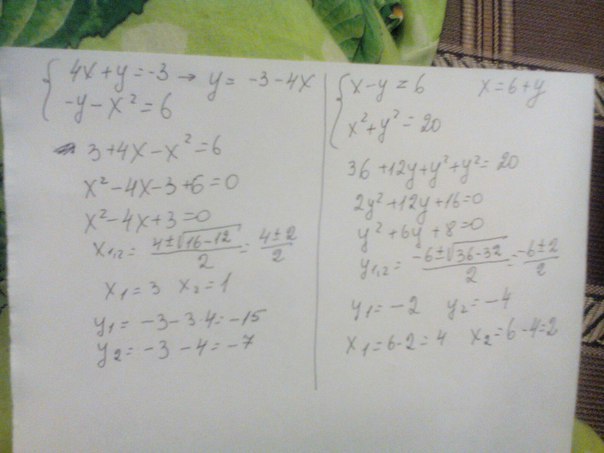 4x+y=-3 → y= -3-4x
-y-x²=6
3+4x-x²=6
x²-4x-3+6=0
x²-4x+3=0
x₁,₂= (4±√16-12)/2 = (4±2)/2
x₁=3 x₂=1
y₁= -3-3·4=-15
y₂= -3 -4=-7
x-y=6 x=6+y
x²+y²=20
36+12y+y²+y²=20
2y²+12y+16=0
y²+6y+8=0
y₁,₂= (-6±√36-32)/2 = (-6±2)/2
y₁=-2 y₂=-4
x₁=6-2=4 x₂=6-4=2